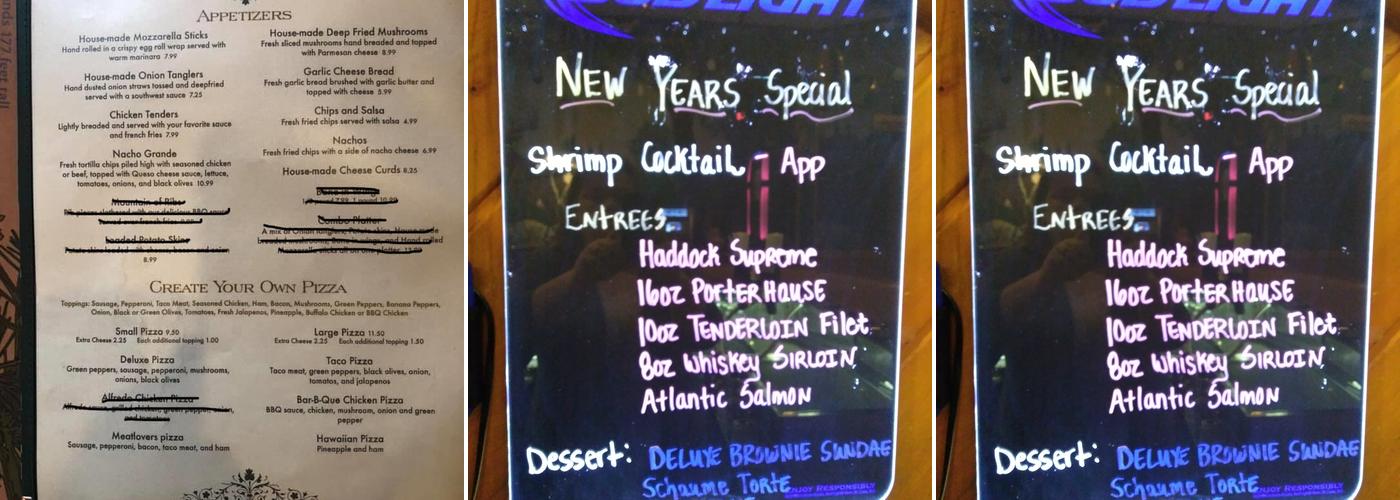 APPETIZERS
House-made Mozzarella Sticks
Hand rolled in a crispy egg roll wrap served with
warm marinara 7.99
House-made Onion Tanglers
Hand dusted onion straws tossed and deepfried
served with a southwest sauce 7.25
Chicken Tenders
Lightly breaded and served with your favorite sauce
and french fries 7.99
Nacho Grande
Fresh tortilla chips piled high with seasoned chicken
or beef, topped with Queso cheese sauce, lettuce,
tomatoes, onions, and black olives 10.99
Mountain of Ribs
Loaded Potato Skins
8.99
House-made Deep Fried Mushrooms
Fresh sliced mushrooms hand breaded and topped
with Parmesan cheese 8.99
Garlic Cheese Bread
Fresh garlic bread brushed with garlic butter and
topped with cheese 5.99
Chips and Salsa
Fresh fried chips served with salsa 4.99
Nachos
Fresh fried chips with a side of nacho cheese 6.99
House-made Cheese Curds 8.25
Combo Platter
CREATE YOUR OWN PIZZA
Toppings: Sausage, Pepperoni, Taco Meat, Seasoned Chicken, Ham, Bacon, Mushrooms, Green Peppers, Banana Peppers,
Onion, Black or Green Olives, Tomatoes, Fresh Jalapenos, Pineapple, Buffalo Chicken or BBQ Chicken
Small Pizza 9.50
Extra Cheese 2.25 Each additional topping 1.00
Large Pizza 11.50
Extra Cheese 2.25 Each additional topping 1.50
Deluxe Pizza
Green peppers, sausage, pepperoni, mushrooms,
onions, black olives
Alfredo Chicken Pizza
Alfredo sauce, grilled chicken, green pepper, onion,
and tomatoes
Meatlovers pizza
Sausage, pepperoni, bacon, taco meat, and ham
Taco Pizza
Taco meat, green peppers, black olives, onion,
tomatoes, and jalapenos
Bar-B-Que Chicken Pizza
BBQ sauce, chicken, mushroom, onion and green
pepper
Hawaiian Pizza
Pineapple and ham
177 feet tall
NEW YEARS Special
Shrimp Cocktail - App
ENTREES
Haddock Supreme
16oz PORTERHOUSE
10oz TENDERLOIN Filet
8oz Whiskey SIRLOIN
Atlantic Salmon
Dessert: DELUXE BROWNIE SUNDAE
Schaume Torte
ENJOY RESPONSIBLY
NEW YEARS Special
Shrimp Cocktail - App
ENTREES
Haddock Supreme
16oz PORTERHOUSE
10oz TENDERLOIN Filet
8oz Whiskey SIRLOIN
Atlantic Salmon
Dessert: DELUXE BROWNIE SUNDAE
Schaume Torte
ENJOY RESPONSIBLY